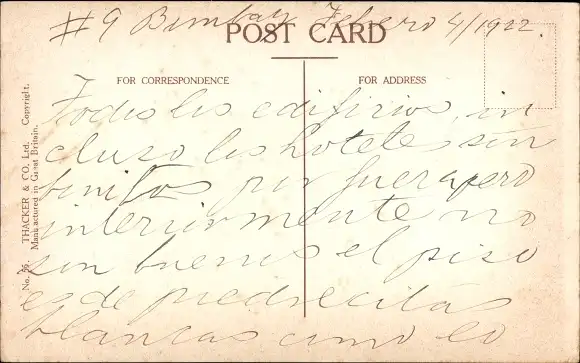 #9 Bombay Febero 4/1922.
POST CARD
FOR CORRESPONDENCE
FOR ADDRESS
Todos los edificios, in
cluso los hoteles son
bonitos por fuera pero
interiormente no
son buenos el piso
es de piedrecitas
blancas como lo
No. 56. THACKER & CO. Ltd. Copyright.
Manufactured in Great Britain.